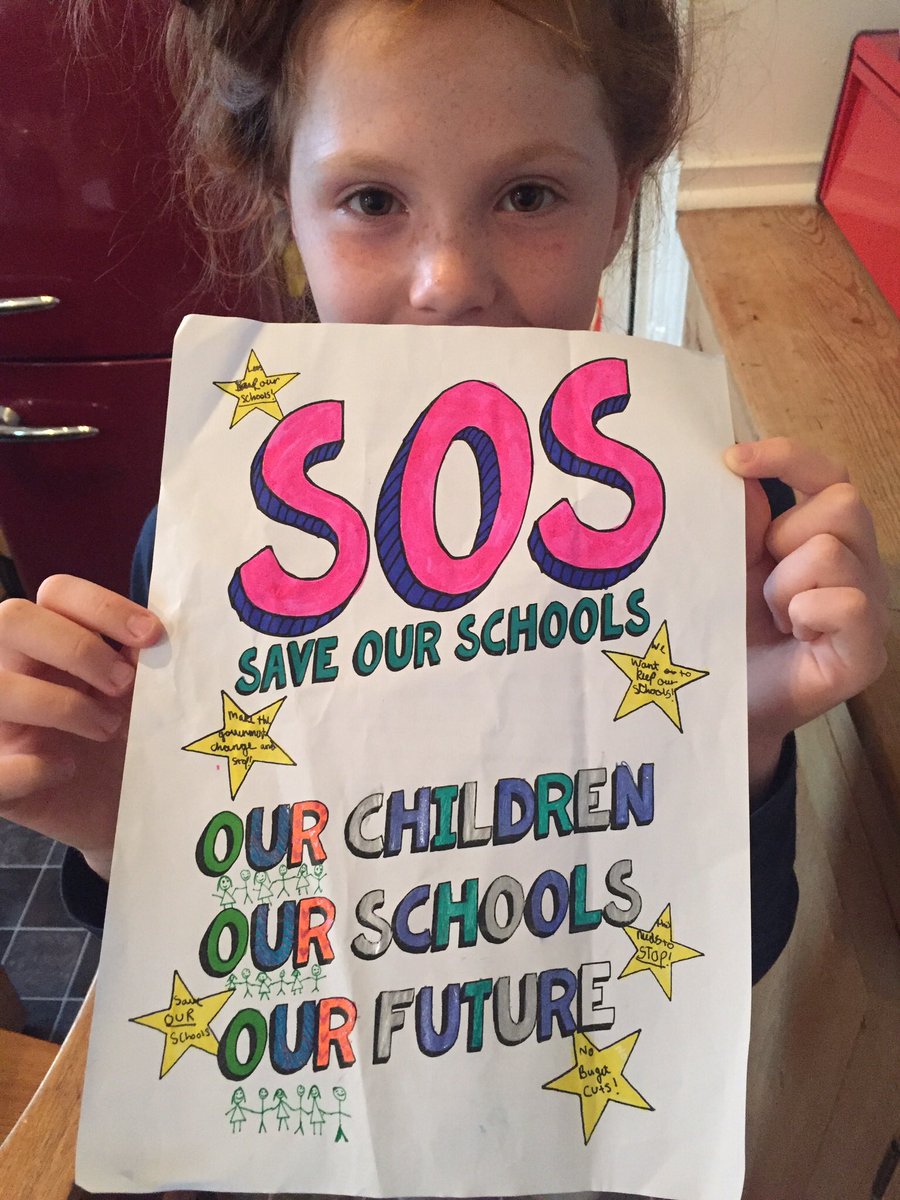 our
schools!
SOS
SAVE OUR SCHOOLS
We
Want to
keep our
Schools!
Make the
government
change and
stop!
OUR CHILDREN
OUR SCHOOLS
OUR FUTURE
Needs to
STOP!
Save
OUR
Schools
No
Buget
Cuts!